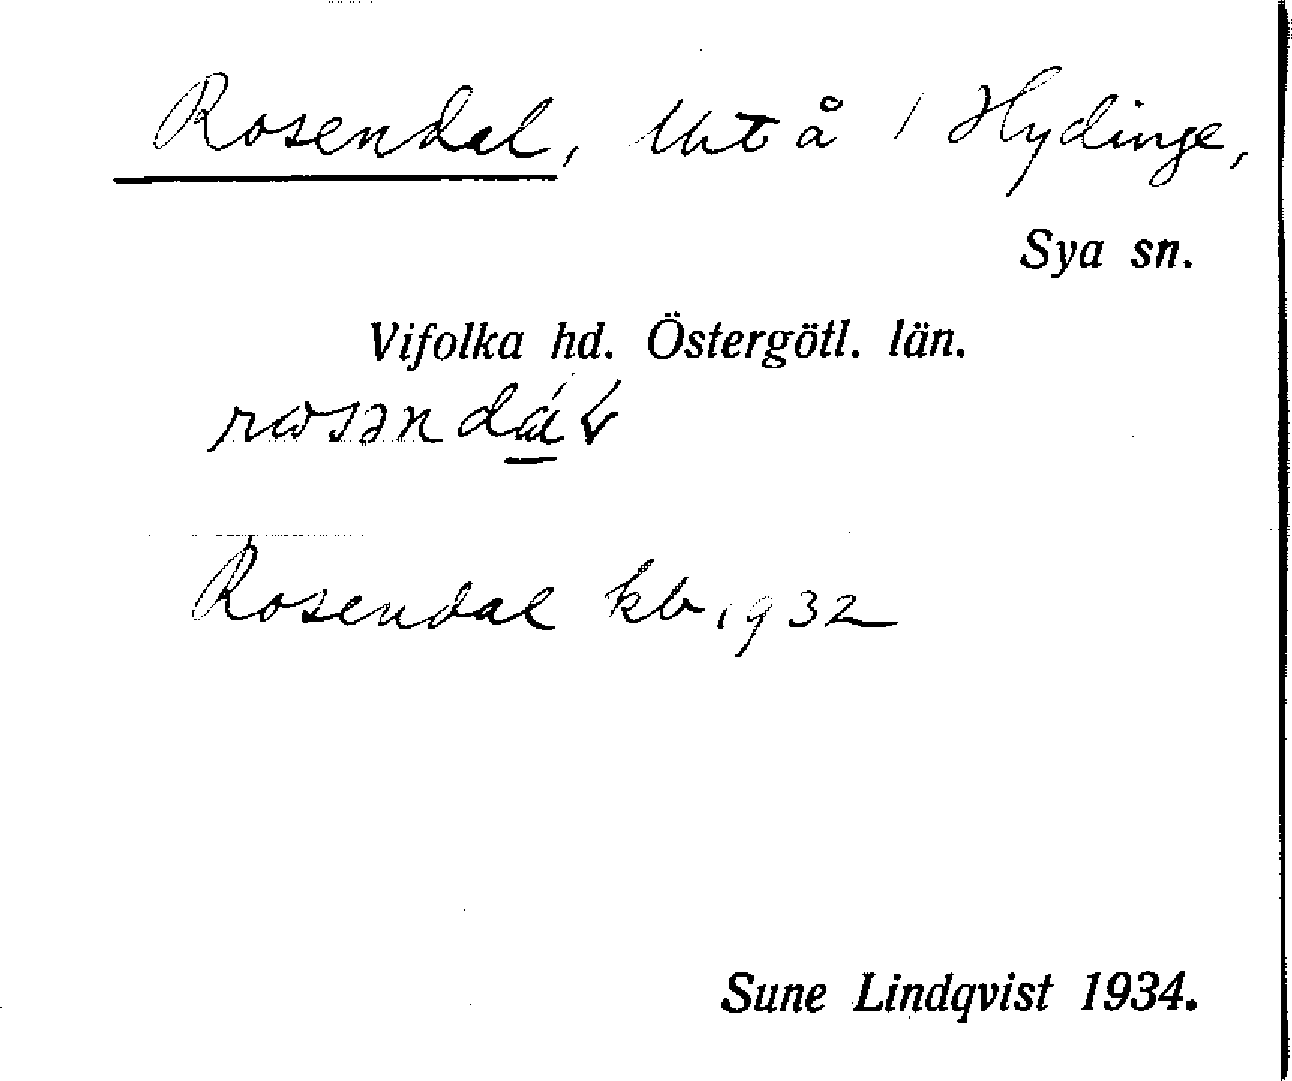 Rosendal, lht å 1 Hydinge,
Sya sn.
Vifolka hd. Östergötl. län.
Rosendal kb. 1932
Sune Lindqvist 1934.